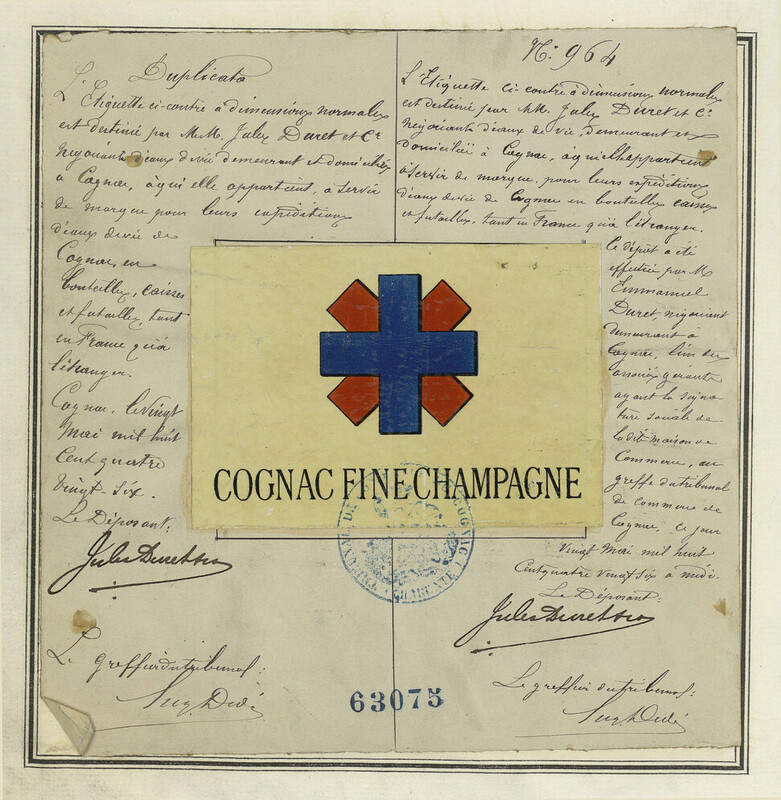 Duplicata
L'Etiquette ci-contre à dimensions normales
est destinée par M.M. Jules Duret et Cie
négociants d'eaux de vie demeurant et domiciliés
à Cognac, à qui elle appartient, à servir
de marque pour leurs expéditions
d'eaux de vie de
Cognac, en
bouteilles, caisses
et futailles, tant
en France qu'à
l'étranger.
Cognac, le vingt
Mai mil huit
cent quatre
vingt-six.
Le Déposant:
Jules Duret & Co
Le greffier du tribunal:
No 964
L'Etiquette ci-contre à dimensions normales
est destinée par MM. Jules Duret et Cie
négociants d'eaux de vie, demeurant et
domiciliés à Cognac, à qui elle appartient
à servir de marque pour leurs expéditions
d'eaux de vie de Cognac en bouteilles caisses
et futailles, tant en France qu'à l'étranger.
Ce dépôt a été
effectué par M
Emmanuel
Duret, négociant
demeurant à
Cognac, l'un des
associés gérants
ayant la signa
ture sociale de
la dite maison de
Commerce, au
greffe du tribunal
de commerce de
Cognac, ce jour
vingt Mai mil huit
Cent quatre vingt six à midi.
Le Déposant:
Jules Duret & Co
Le greffier du tribunal:
COGNAC FINE CHAMPAGNE
TRIBUNAL DE COGNAC
(CHARENTE)
63075